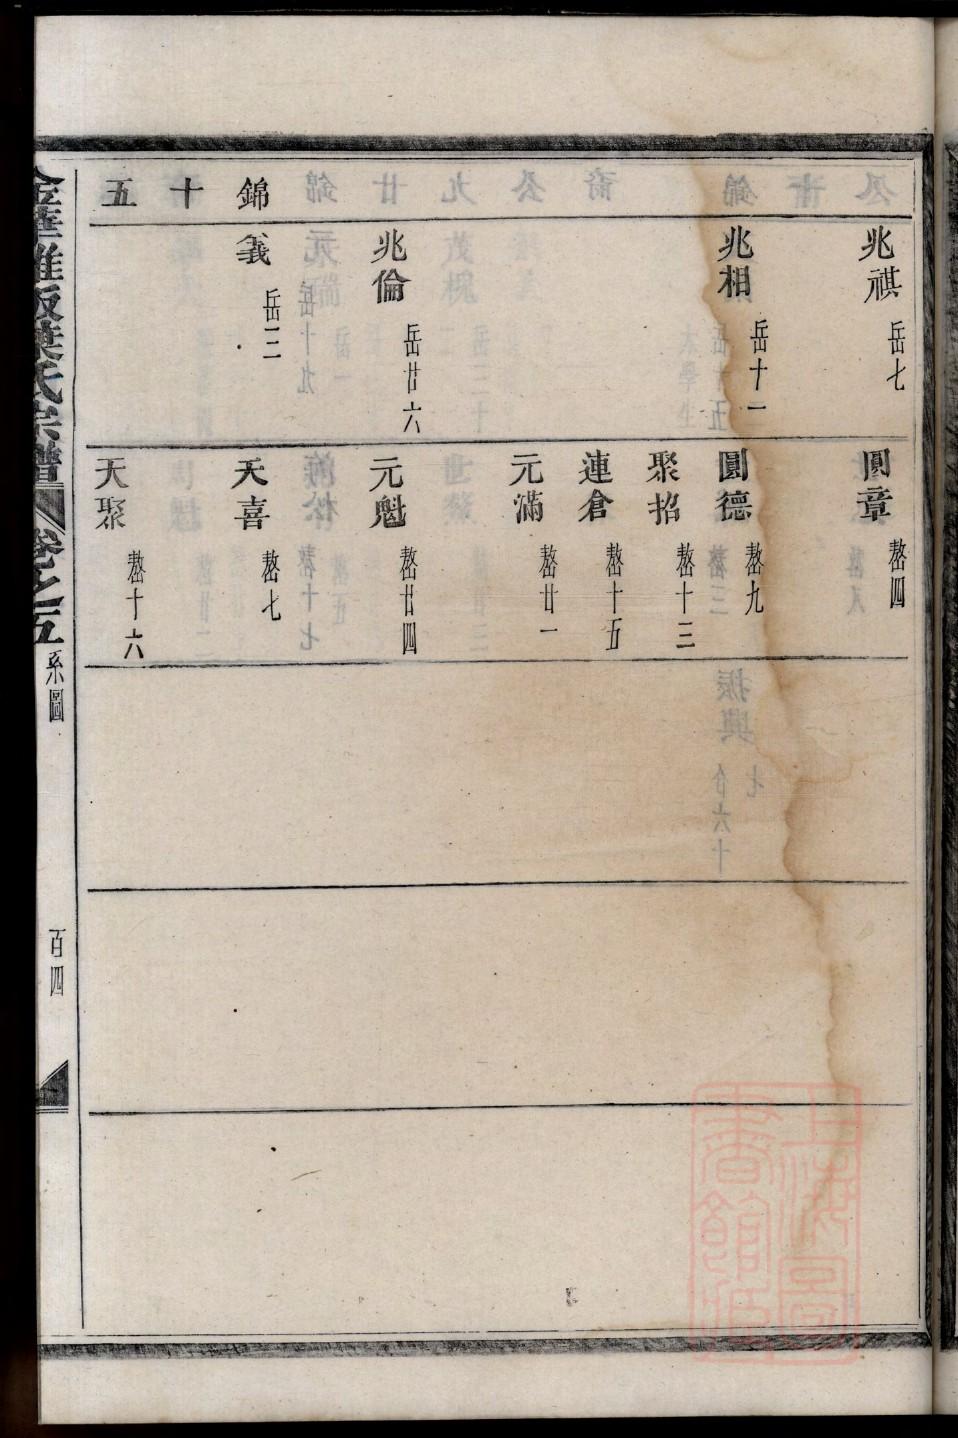 錦十五
兆祺 岳七
兆相 岳十一
兆倫 岳廿六
義 岳二
圓章 嶅四
圓德 嶅九
聚招 嶅十三
連倉 嶅十五
元滿 嶅廿一
元魁 嶅廿四
天喜 嶅七
天聚 嶅十六
葉氏宗譜 卷之五 系圖 百四
上海圖書館